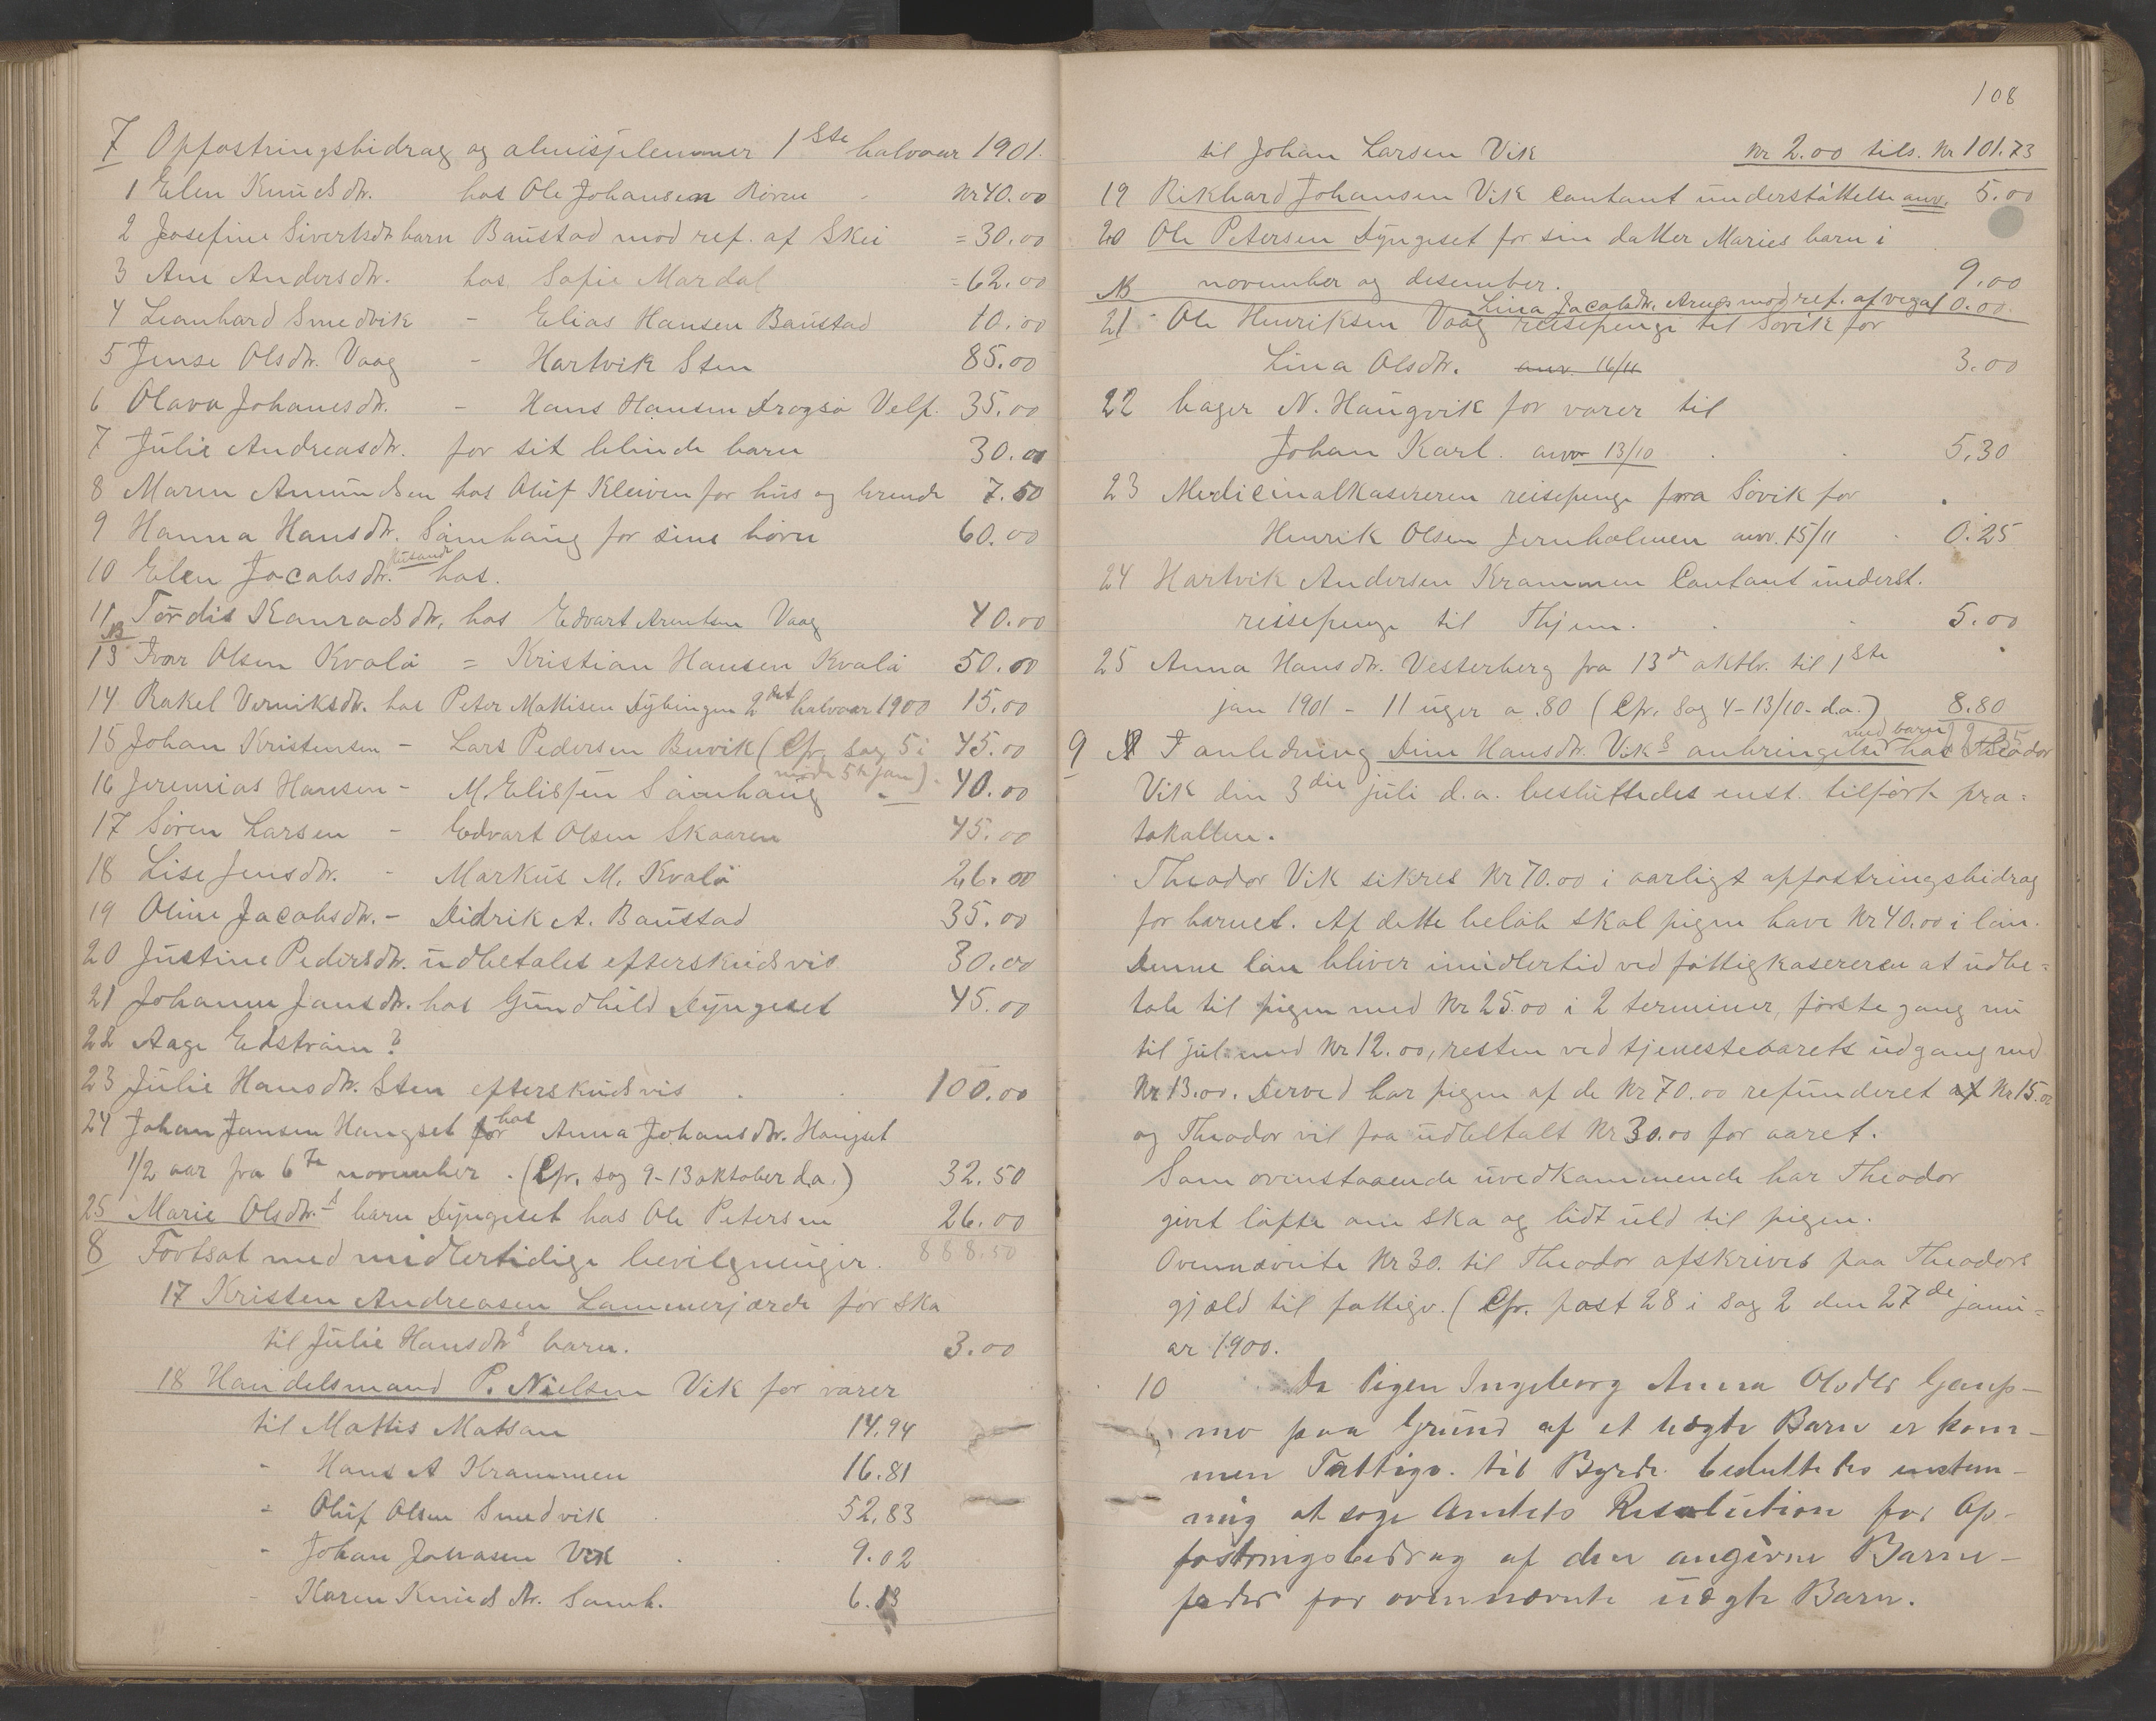 7 Opfostringsbidrag og almisjelemmer 1ste halvaar 1901.
1 Elen Knudsdtr. hos Ole Johansen Røren - Kr 40.00
2 Josefine Sivertsdtr barn Baustad mod ref. af Skei = 30.00
3 Ane Andersdtr. hos Sofie Mardal = 62.00
4 Leonhard Smedvik - Elias Hansen Baustad 10.00
5 Jense Olsdtr. Vaag - Hartvik Sten 85.00
6 Olava Johansdtr. - Hans Hansen Dragsø Velf. 35.00
7 Julie Andreasdtr. for sit blinde barn 30.00
8 Maren Amundsen hos Oluf Kleiven for hus og brende 7.50
9 Hanna Hansdtr. Sømhaug for sine børn 60.00
10 Elen Jacobsdtr. hos.
11 Tordis Konradsdtr. hos Edvart Arentsen Vaag 40.00
NB
13 Ivar Olsen Kvalø = Kristian Hansen Kvalø 50.00
14 Rakel Verniksdtr. hos Peter Mattisen Dybingen 2det halvaar 1900 15.00
15 Johan Kristensen - Lars Pedersen Buvik (Cfr. sag 5 i 45.00
møde 5te jan).
16 Jeremias Hansen - M. Elissen Sømhaug 40.00
17 Søren Larsen - Edvart Olsen Skaaren 45.00
18 Lise Jensdtr. - Markus M. Kvalø 26.00
19 Oline Jacobsdtr. - Didrik A. Baustad 35.00
20 Justine Pedersdtr. udbetales efterskudsvis 30.00
21 Johanna Jansdtr. hos Gundhild Dyngeset 45.00
22 Aage Edstrøm?
23 Julie Hansdtr. Sten efterskudsvis 100.00
24 Johan Jansen Hangset for hos Anna Johansdtr. Hangset
1/2 aar fra 6te november. (Cfr. sag 9-13 oktober d.a.) 32.50
25 Marie Olsdtr.s barn Dyngeset hos Ole Petersen 26.00
8 Fortsat med midlertidige bevilgninger. 888.50
17 Kristen Andreasen Lammerjærde for sko
til Julie Hansdtrs barn. 3.00
18 Handelsmand P. Nielsen Vik for varer
til Mattis Matsen 14.94
- Hans A Krammen 16.81
- Oluf Olsen Smedvik 52.83
- Johan Jonasen Vik 9.02
- Karen Knudsdtr. Sømh. 6.13
108
til Johan Larsen Vik Kr 2.00 tils. Kr 101.73
19 Rikhard Johansen Vik contant understøttelse anv. 5.00
20 Ole Petersen Dyngeset for sin datter Maries barn i
november og desember. 9.00
NB Lina Jacobsdtr. mod ref. af Vega 10.00
21 Ole Henriksen Vaag reisepenge til Søvik for
Lina Olsdtr. anv. 16/11 3.00
22 bager N. Haugvik for varer til
Johan Karl. anv 13/10 5.30
23 Medicinalkasereren reisepenge fra Søvik for
Henrik Olsen Jernholmen anv. 15/11 0.25
24 Hartvik Andersen Krammen Contant underst.
reisepenge til Thjem. 5.00
25 Anna Hansdtr. Vesterberg fra 13de oktbr. til 1ste
jan 1901 - 11 uger a .80 (Cfr. sag 4-13/10-d.a.) 8.80
med barn
9 I anledning Dine Hansdtr. Viks anbringelse hos Theodor
Vik den 3die juli d.a. besluttedes enst. tilført pro=
tokollen.
Theodor Vik sikres Kr 70.00 i aarligt opfostringsbidrag
for barnet. Af dette beløb skal pigen have Kr 40.00 i løn.
Denne løn bliver imidlertid ved fattigkasereren at udbe=
tale til pigen med Kr 25.00 i 2 terminer, første gang nu
til jul med Kr 12.00, resten ved tjenesteaarets udgang med
Kr 13.00. Derved har pigen af de Kr 70.00 refunderet af Kr 15.00
og Theodor vil faa udbetalt Kr 30.00 for aaret.
Som ovenstaaende uvedkommende har Theodor
givet løfte om sko og lidt uld til pigen.
Ovennævnte Kr 30. til Theodor afskrives paa Theodors
gjæld til fattigv. (Cfr. post 28 i sag 2 den 27de janu=
ar 1900.
10 Da Pigen Ingeborg Anna Olsdtr
mo paa Grund af et uægte Barn er kom-
men Fattigv. til Byrde besluttedes enstem-
mig at søge Amtets Resolution for Op-
fostringsbidrag af den angivne Barne-
fader for ovennævnte uægte Barn.